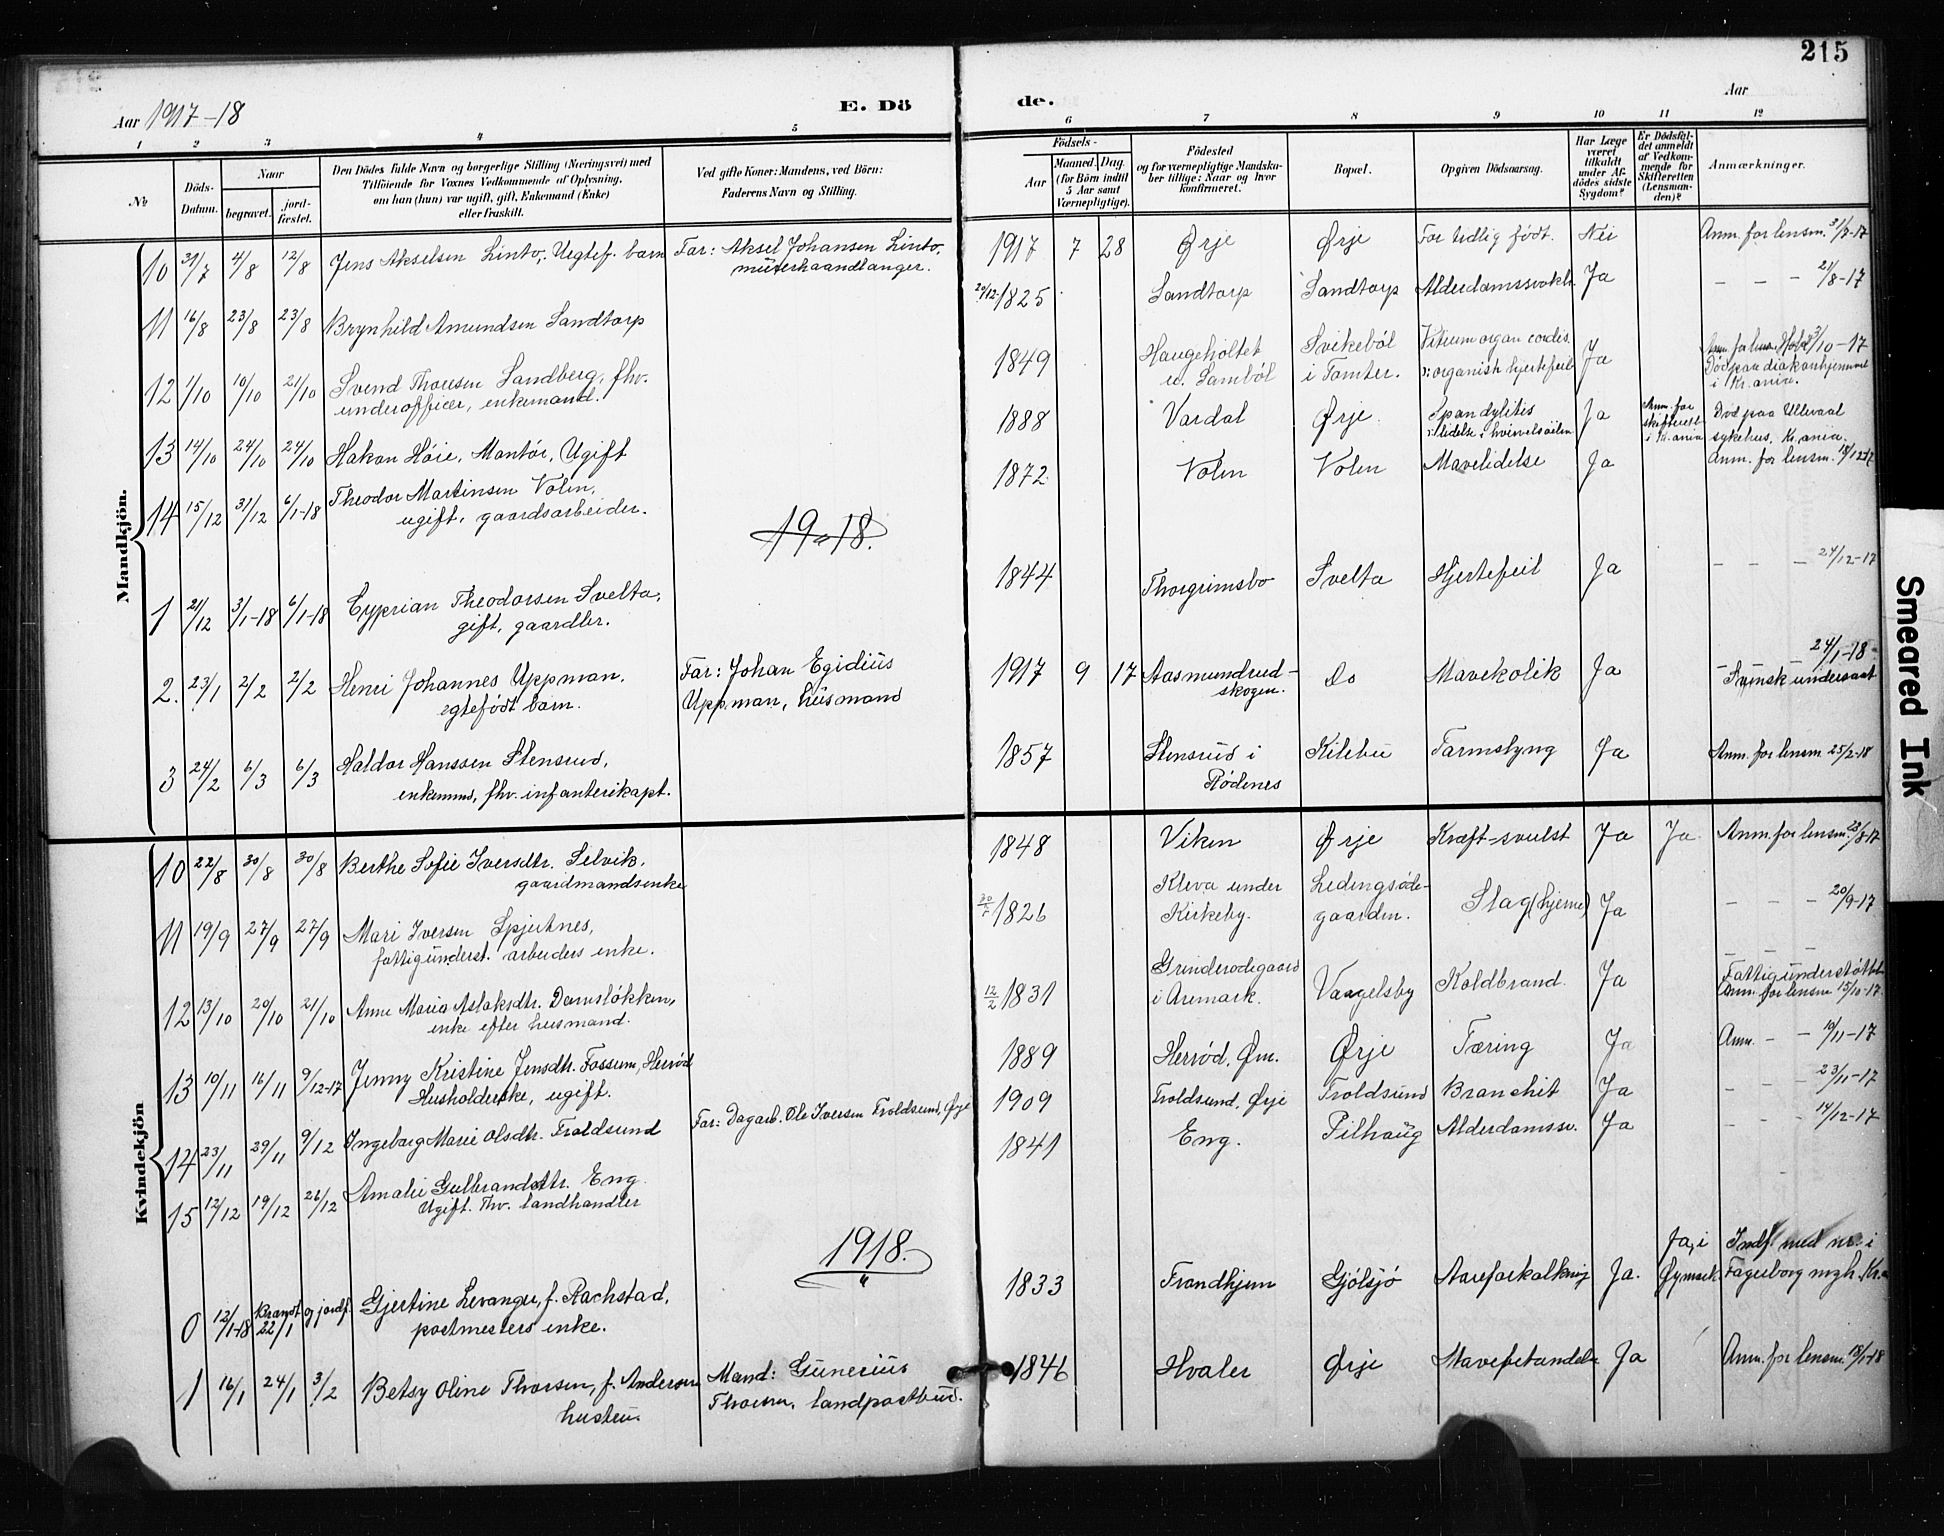 215
Aar 1917-18
E. Dö
de.
Aar
1 2 3 4 5 6 7 8 9 10 11 12
№
Döds-
Datum.
Naar
begravet.
jord-
fæstet.
Den Dödes fulde Navn og borgerlige Stilling (Næringsvei) med
Tilföiende for Voxnes Vedkommende af Oplysning,
om han (hun) var ugift, gift, Enkemand (Enke)
eller fraskilt.
Ved gifte Koner: Mandens, ved Börn:
Faderens Navn og Stilling.
Födsels-
Aar
Maaned. Dag.
(for Börn indtil
5 Aar samt
Værnepligtige).
Födested
og for værnepligtige Mandska-
ber tillige: Naar og hvor
konfirmeret.
Bopæl.
Opgiven Dödsaarsag.
Har Læge
været
tilkaldt
under Af-
dödes sidste
Sygdom?
Er Dödsfal-
det anmeldt
af Vedkom-
mende for
Skifteretten
(Lensman-
den)?
Anmærkninger.
Mandkjön.
10 31/7 4/8 12/8 Jens Akselsen Linto, Uegtef. barn Far: Aksel Johansen Linto, 1917 7 28 Ørje Ørje For tidlig født. Nei Anm. for lensm. 31/7-17
murerhaandlanger.
11 16/8 23/8 23/8 Brynhild Amundsen Sandtorp 20/12 1825 Sandtorp Sandtorp Alderdomssvakh. Ja - - - 21/8-17
12 1/10 10/10 21/10 Svend Thoresen Sandberg, fhv. 1849 Haugeholtet Svikeböl Vitium organ cordis. Ja 3/10-17
underofficer, enkemand. u. Samböl i Tomter. ɔ: organisk hjertefeil Död paa diakonhjemmet
i Kr.ania.
13 14/10 24/10 24/10 Hakon Høie, Montör, Ugift 1888 Vardal Ørje Spondylitis Ja Anm. for Död paa Ullevaal
ɔ: lidelse i hvirvelsöilen skifteret sykehus, Kr.ania.
i Kr.ania
14 15/12 31/12 6/1-18 Theodor Martinsen Volen, 1872 Volen Volen Mavelidelse Ja Anm. for lensm. 18/12-17
ugift, gaardsarbeider.
1918.
1 21/12 3/1-18 6/1-18 Cyprian Theodorsen Svelta, 1844 Thorgrimsbo Svelta Hjertefeil Ja - - - 24/12-17
gift, gaardbr.
2. 23/1 2/2 2/2 Henri Johannes Uppman, Far: Johan Egidius 1917 9 17 Aasmundrud- Do Mavekolik Ja 24/1-18
egtefödt barn. Uppman, husmand skogen. Svensk undersaat
3 24/2 6/3 6/3 Haldor Hanssen Stensrud, 1857 Stensrud i Kilebu Tarmslyng Ja Anm. for lensm 25/2-18
enkemand, fhv. infanterikapt. Rödenes
Kvindekjön
10 22/8 30/8 30/8 Berthe Sofie Iversdtr. Selvik. 1848 Viken Ørje Kræft-svulst Ja Ja Anm. for lensm. 23/8-17
gaardmandsenke
11 19/9 27/9 27/9 Mari Iversen Spjutnes, 1826 Kleva under Ledingsöde- Slag (hjerne) Ja - - - 20/9-17
fattigunderst. arbeiders enke. Kirkeby. gaarden.
12 13/10 20/10 21/10 Anne Maria Aslaksdtr. Damslökken, 12/2 1831 Grinderödegaard Vaagelsby Koldbrand. Ja Fattigunderstöttet.
enke efter husmand. i Aremark. Anm. for lensm 15/10-17.
13 10/11 16/11 9/12-17 Jenny Kristine Jensdtr. Fossum, Herröd 1889 Herröd, Øm. Ørje Tæring Ja Anm. - - 10/11-17
Husholderske, ugift.
14 23/11 29/11 9/12 Ingeborg Marie Olsdtr. Troldsund Far: Dagarb. Ole Iversen Troldsund, Ørje 1909 Troldsund, Ørje Troldsund Bronchit Ja - - - 23/11-17
15 12/12 19/12 26/12 Amalie Gulbrandsdtr. Eng 1841 Eng. Pilhaug Alderdomssv. Ja - - - 14/12-17
Ugift. Fhv. landhandler
1918.
0 12/1-18 Brændt 22/1 og jordf. Gjertine Levanger, f. Rachstad, 1833 Trondhjem Gjölsjö Aareforkalkning Ja. Ja, i Øymark. Indf. med nr. i
postmesters enke. Fagerborg mgh. Kr.a
1 16/1 24/1 3/2 Betsy Oline Thorsen, f. Andersen Mand: Gunerius 1846 Hvaler Ørje Mavebetændelse Ja Anm. for lensm. 18/1-18
hustru. Thorsen, landpostbud.
Smeared Ink